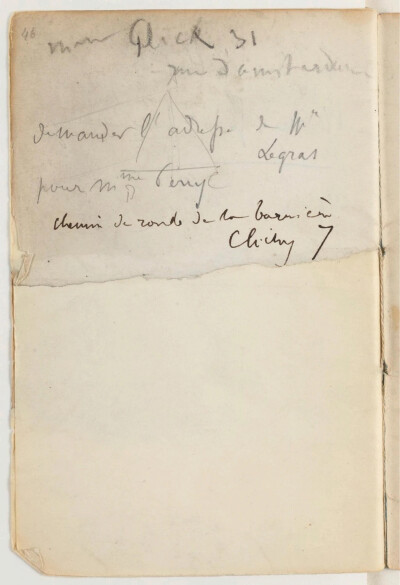 46
Gluck 31
rue d'amsterdam
demander l'adresse de Mr
Legras
pour mme
chemin de ronde de la barrière
Clichy 7